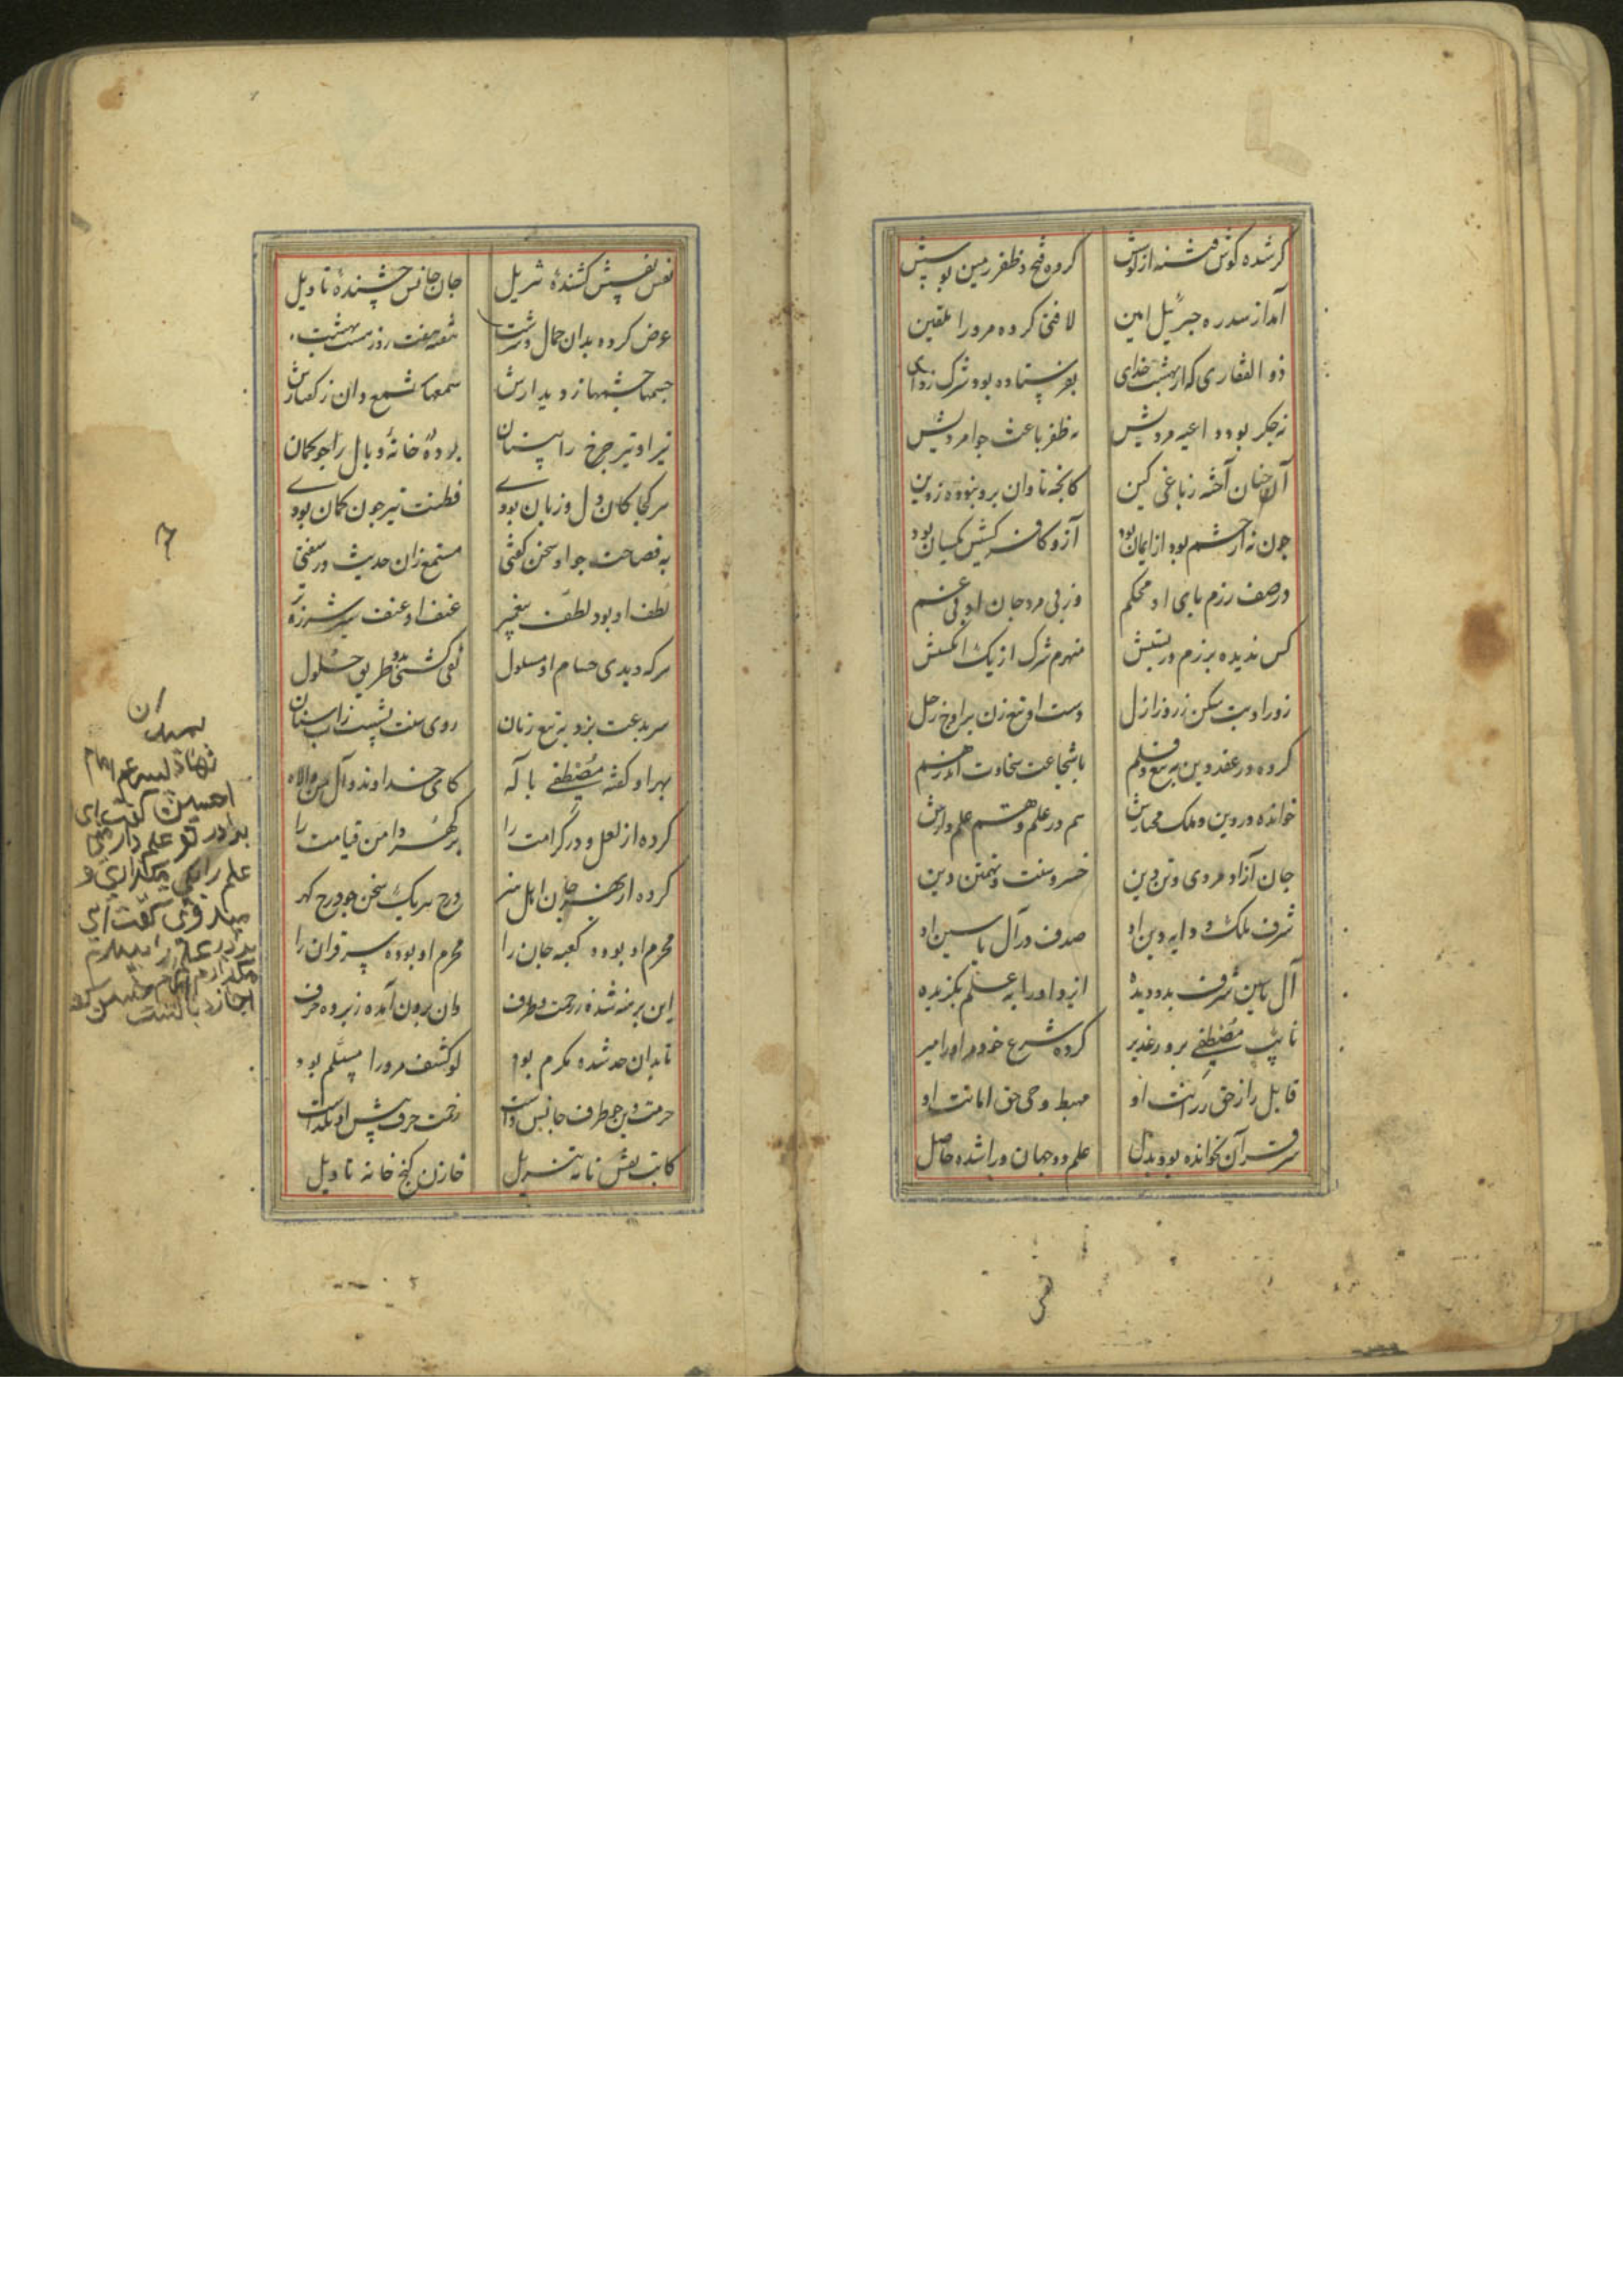 کر شده گوش فتنه از کوسش کرده فتح و ظفر زمین بوسش
آمد از سدره جبرئیل امین لافتی کرده مرورا تلقین
ذو الفقاری که از بهشت خدای بفرستاده بود شرک زدای
نه جکر بود داعیه مردیش نه ظفر باعث جوامردیش
آنچنان آخته ز باغی کین کانجه تاوان برو نبوده ز دین
جون نه از خشم بود از ایمان بود آز و کافر کشیش یکسان بود
در صف رزم پای او محکم وز پی مرد جان او بی غم
کس ندیده برزم در پستش منهزم شرک از یک انگشتش
زور او بت شکن ز روز ازل دست او تیغ زن بر اوج زحل
کرده در عقد دین به تیغ و قلم با شجاعت سخاوت اندر هم
خوانده در دین و ملک مختارش هم در علم و هم علم دارش
جان آزاد مردی و تن دین خسرو سنت و تهمتن دین
شرف ملک و دایه دین او صدف در آل یاسین او
آل یاسین شرف بدو دیده ایزد او را به علم بکزیده
نایب مصطفی بروز غدیر کرده در شرع خود مر او را میر
قابل راز حق رزانت او مهبط وحی حق امانت او
سر قرآن بخوانده بود بدل علم دو جهان ورا شده حاصل
نفس
نفس نفسش کشنده تنزیل جان جانش چشنده تاویل
عرض کرده بدان جمال و سرشت هشت بهشت
چشمها ز دیدارش سمعها شمع دان ز گفتارش
تیر او تیر چرخ را بستان بد ده خانه وبال را جو کمان
هر کجا کان دل و زبان بودی فطنت تیر جون کمان بودی
به فصاحت جو او سخن گفتی مستمع زان حدیث در سفتی
لطف او بود لطف پیغمبر عنف او عنف شیر شرزه نر
هر که دیدی حسام او مسلول نفی گشتی بدو طریق حلول
سر بدعت بزد به تیغ زبان روی سنت بشست از آب سنان
بهر او گفته مصطفی با آله کای خداوند وآل من والاه
کرده از لعل و در کرامت را بر گهر دامن قیامت را
کرده از بهر جان اهل هنر درج هر یک سخن جو درج گهر
محرم او بوده کعبه جان را محرم او بوده سر قران را
این برهنه شده ز زحمت ظرف وان برون آمده ز پرده حرف
تا بدان حد شده مکرم بود لو کشف مرورا مسلم بود
حرمت دین جو ظرف جانش داشت زحمت حرف پیش او نگذاشت
کاتب نقش نامه تنزیل خازن گنج خانه تاویل
امام
حسین گفت ای
برادر تو علم دار منی
علم را میکذاری و
میروی گفت ای
برادر علم را